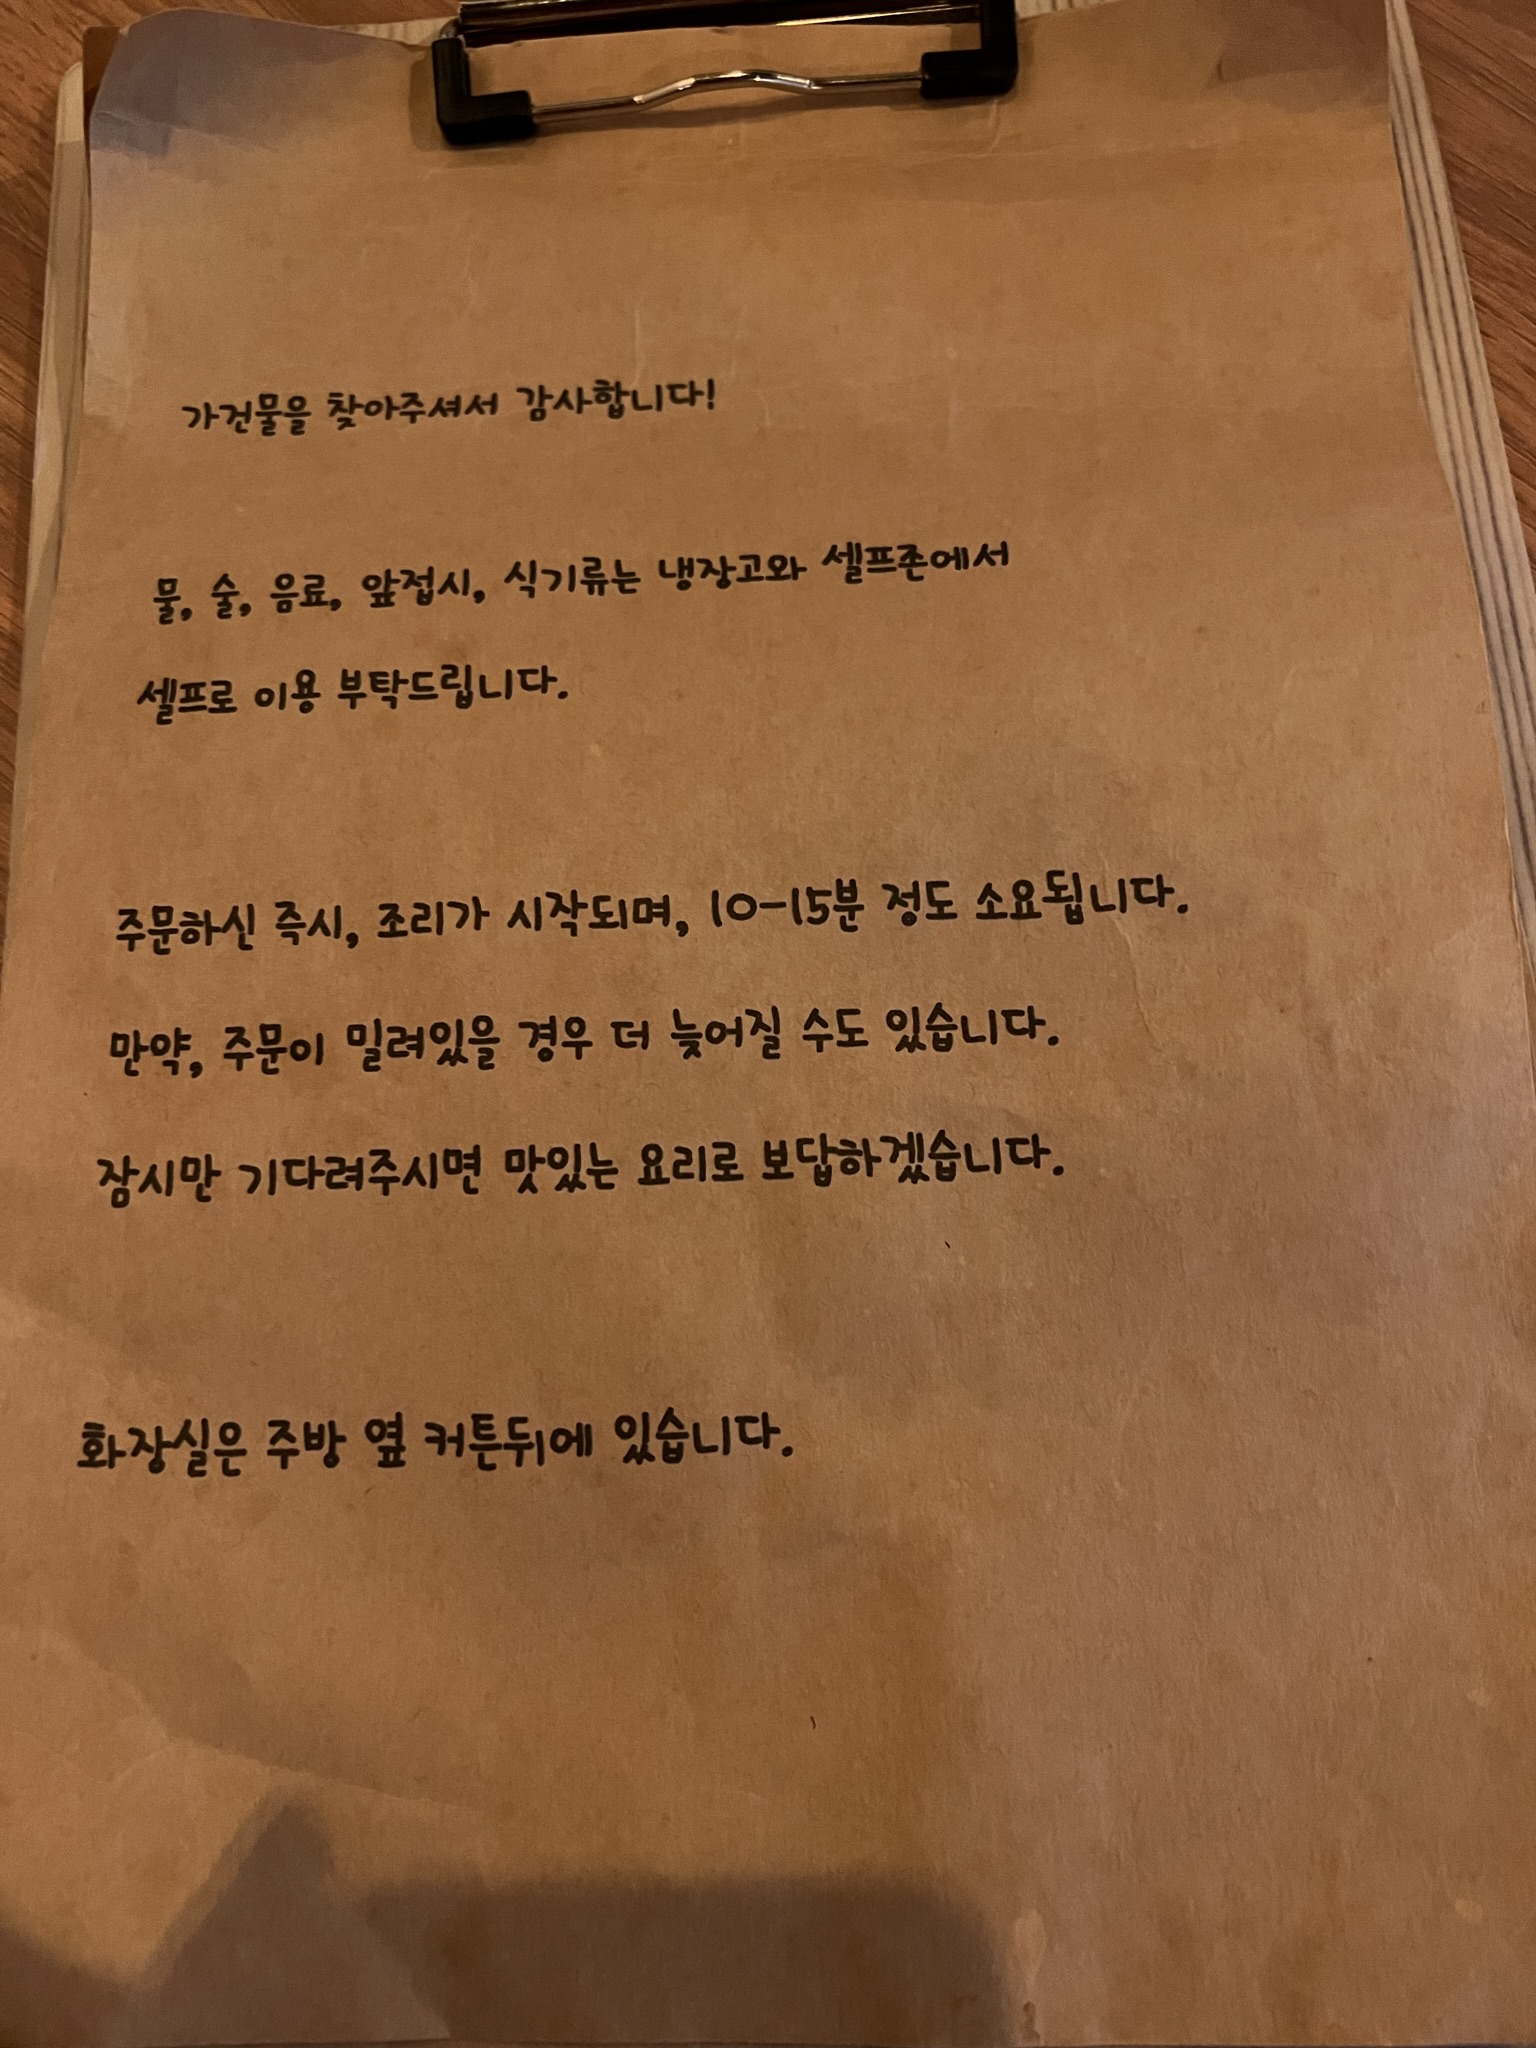 가건물을 찾아주셔서 감사합니다!
물, 술, 음료, 앞접시, 식기류는 냉장고와 셀프존에서
셀프로 이용 부탁드립니다.
주문하신 즉시, 조리가 시작되며, 10-15분 정도 소요됩니다.
만약, 주문이 밀려있을 경우 더 늦어질 수도 있습니다.
잠시만 기다려주시면 맛있는 요리로 보답하겠습니다.
화장실은 주방 옆 커튼뒤에 있습니다.